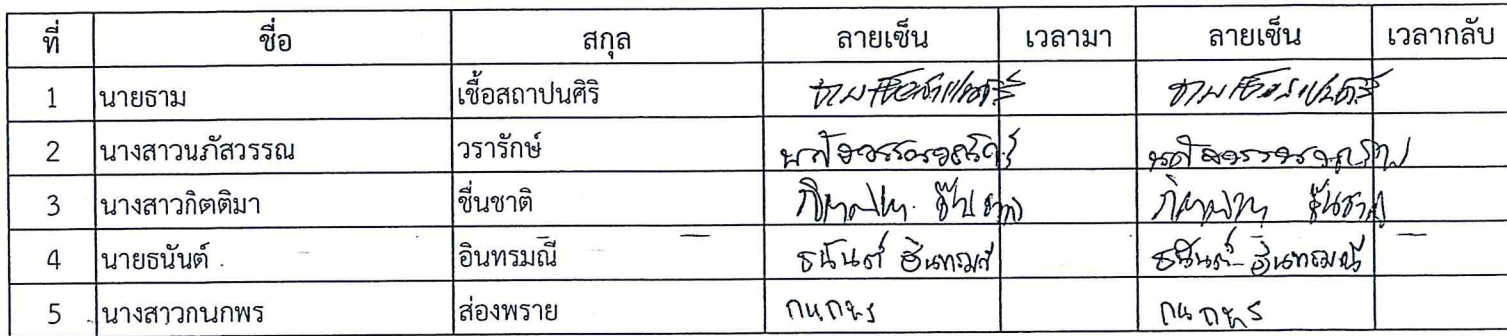 ที่ ชื่อ สกุล ลายเซ็น เวลามา ลายเซ็น เวลากลับ
1 นายธาม เชื้อสถาปนศิริ ธาม เชื้อสถาปนศิริ ธาม เชื้อสถาปนศิริ
2 นางสาวนภัสวรรณ วรารักษ์
3 นางสาวกิตติมา ชื่นชาติ กิตติมา ชื่นชาติ กิตติมา ชื่นชาติ
4 นายธนันต์ อินทรมณี ธนันต์ อินทรมณี ธนันต์ อินทรมณี
5 นางสาวกนกพร ส่องพราย กนกพร กนกพร